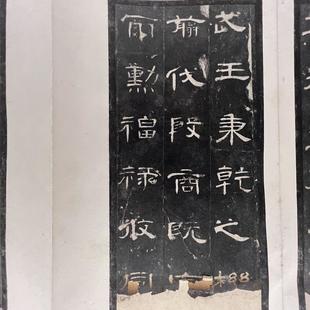 武王秉乾之
翦伐殷商既
爾勳福祿攸同